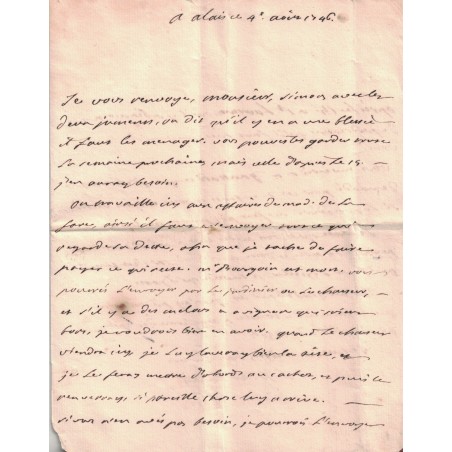 A alais ce 4e août 1746.
Je vous renvoye, monsieur, simon avec les
deux juments, on dit qu'il y en a une blessée
il faut les menager. vous pouves les garder toute
la semaine prochaine, mais celle d'apres le 15
j'en auray besoin.
On travaille icy aux affaires de mad. de la
fare, ainsi il faut m'envoyer tout ce qui
regarde la dette, afin que je tache de faire
payer ce qui reste. Mr Bourgoin est mort. vous
pouves l'envoyer par le jardinier ou la chasseur,
et s'il y a des melons a avignon qui soient
bons, je voudrois bien en avoir. quand le chasseur
viendra icy, je luy laveray bien la tête, et
je le feray mettre d'abord au cachot, et puis le
renverray, si pareille chose luy arrive.
si vous n'en avés pas besoin, je pourrois l'envoyer